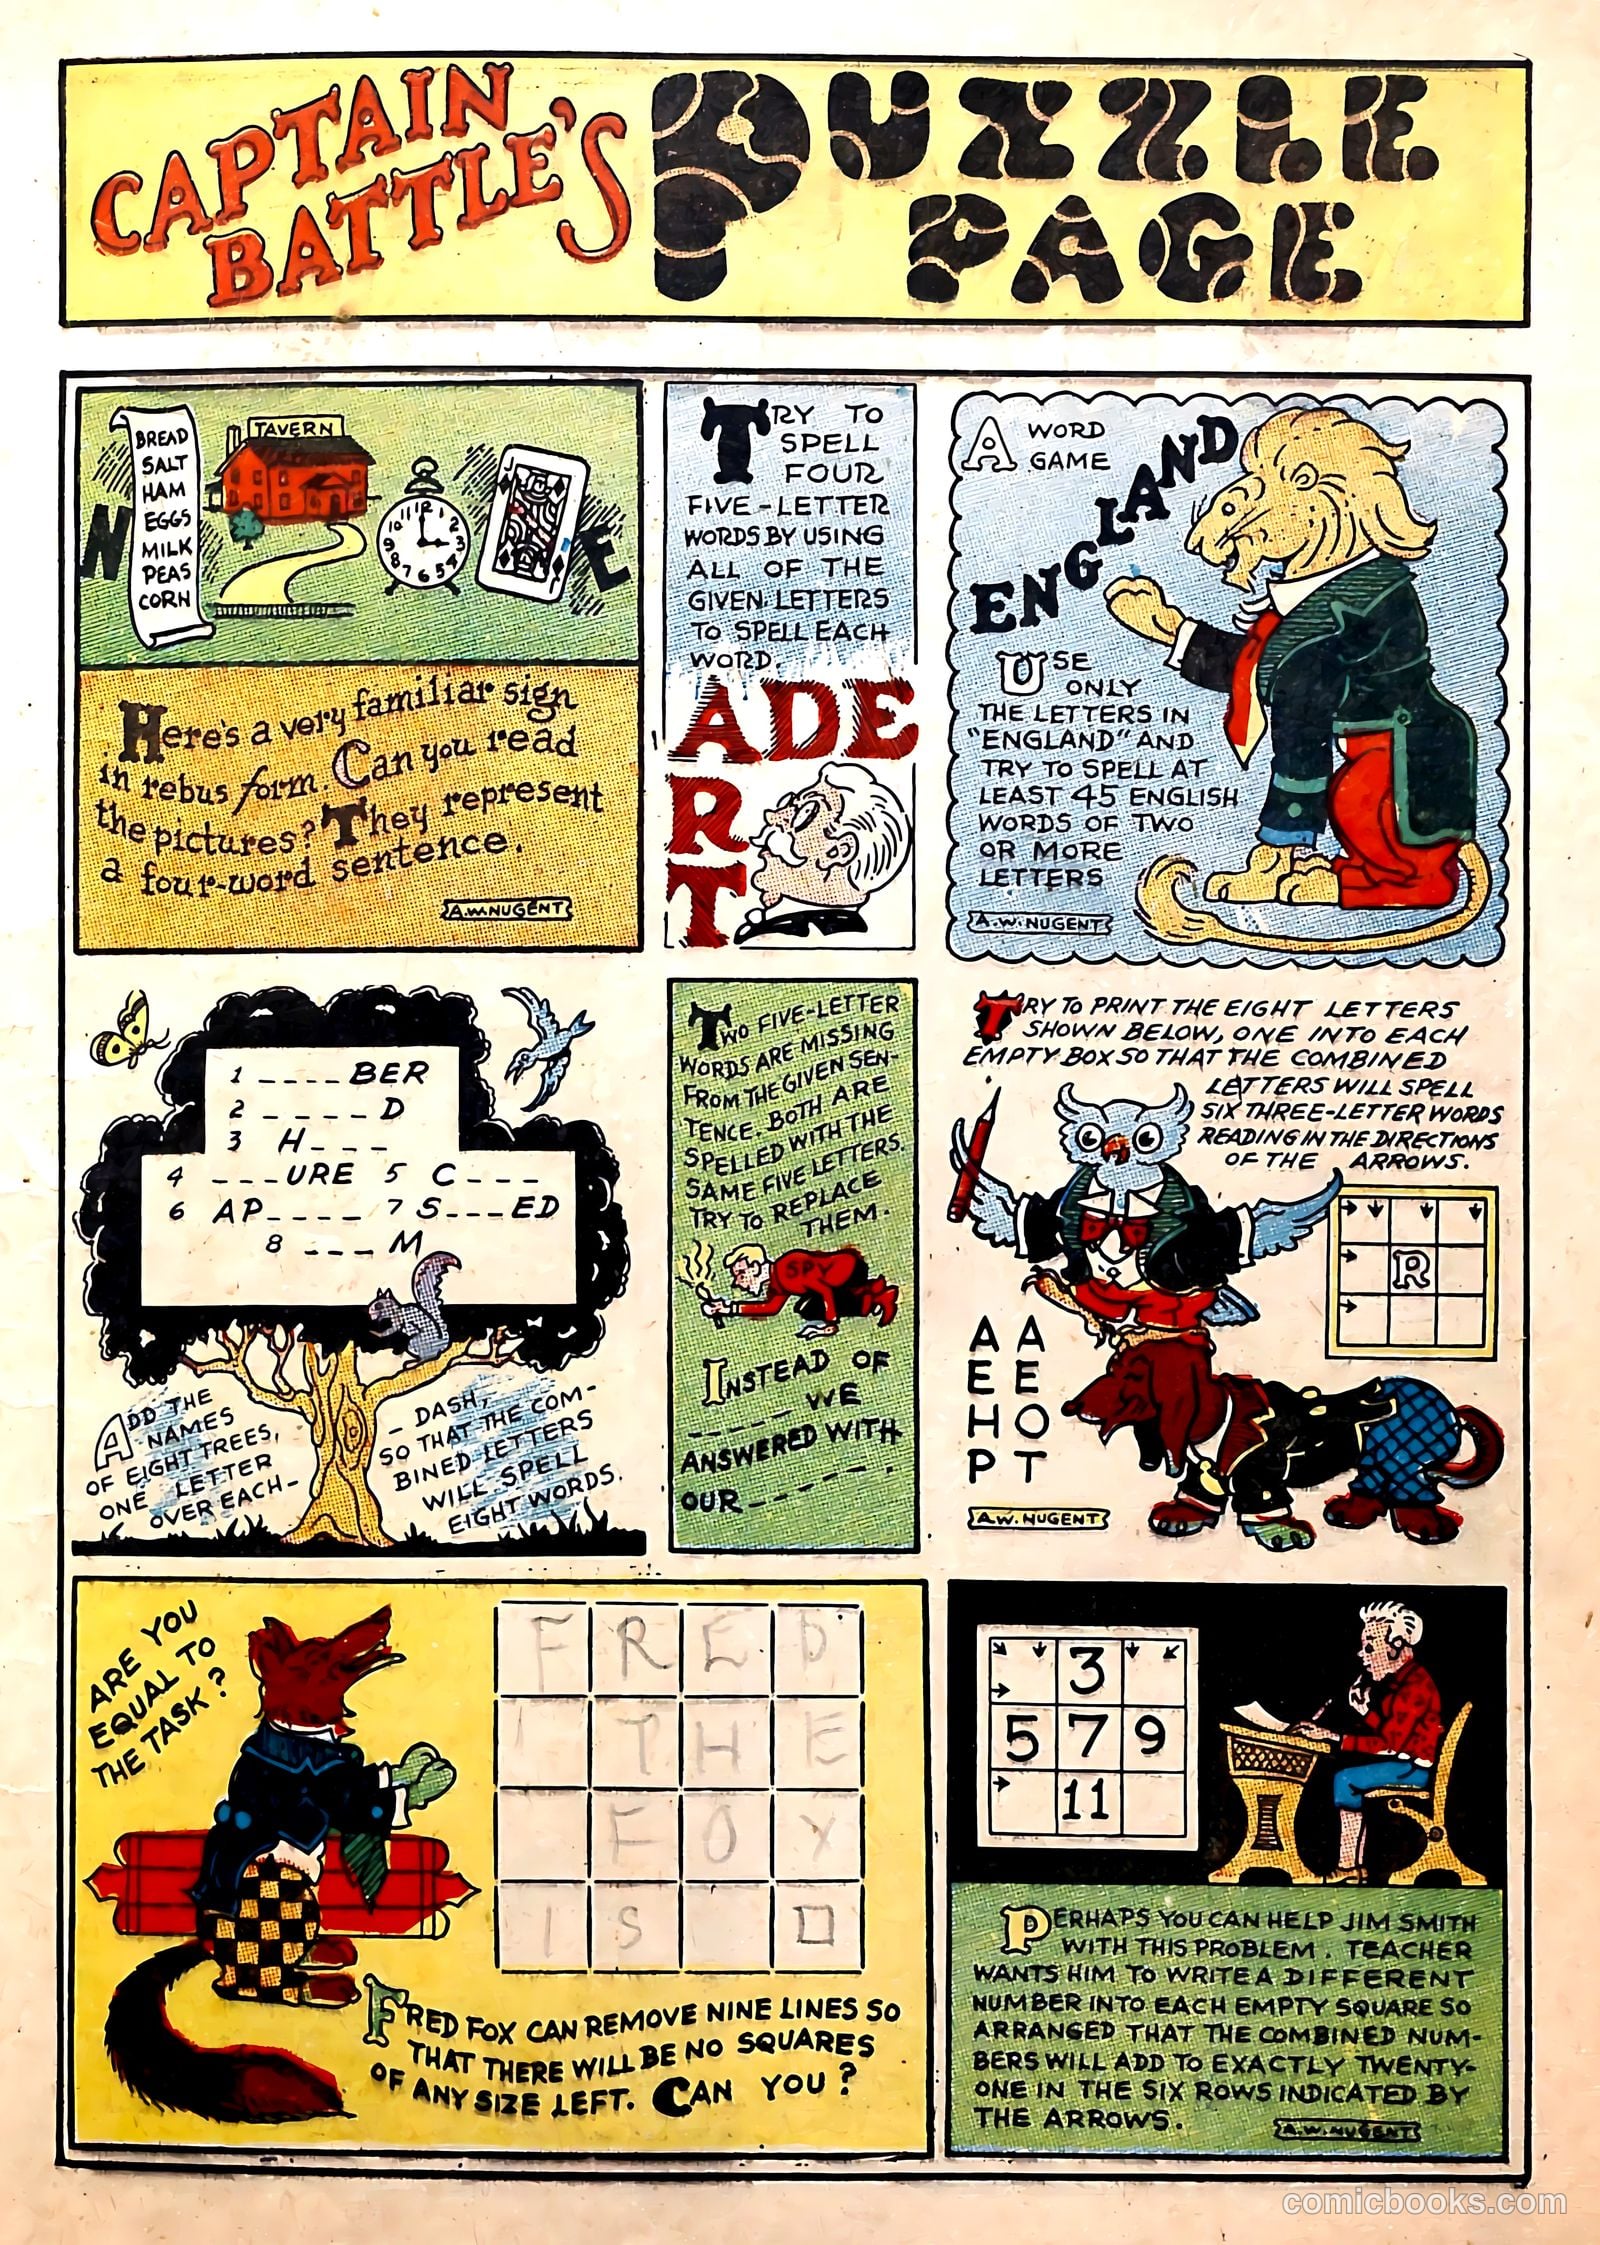 CAPTAIN
BATTLE'S
PUZZLE
PAGE
N
BREAD
SALT
HAM
EGGS
MILK
PEAS
CORN
TAVERN
10 11 12 1
9 2
8 3
7 6 5 4
E
Here's a very familiar sign
in rebus form. Can you read
the pictures? They represent
a four-word sentence.
A.W. NUGENT
TRY TO
SPELL
FOUR
FIVE-LETTER
WORDS BY USING
ALL OF THE
GIVEN LETTERS
TO SPELL EACH
WORD.
ADE
R
T
A WORD
GAME
ENGLAND
USE
ONLY
THE LETTERS IN
"ENGLAND" AND
TRY TO SPELL AT
LEAST 45 ENGLISH
WORDS OF TWO
OR MORE
LETTERS
A.W. NUGENT
1 _ _ _ _ BER
2 _ _ _ _ _ D
3 H _ _ _
4 _ _ _ URE 5 C _ _ _
6 AP _ _ _ _ 7 S _ _ _ ED
8 _ _ _ M
ADD THE
NAMES
OF EIGHT TREES,
ONE LETTER
OVER EACH-
DASH,
SO THAT THE COM-
BINED LETTERS
WILL SPELL
EIGHT WORDS.
TWO FIVE-LETTER
WORDS ARE MISSING
FROM THE GIVEN SEN-
TENCE. BOTH ARE
SPELLED WITH THE
SAME FIVE LETTERS.
TRY TO REPLACE
THEM.
SPY
INSTEAD OF
_ _ _ _ _ WE
ANSWERED WITH
OUR _ _ _ _ _.
TRY TO PRINT THE EIGHT LETTERS
SHOWN BELOW, ONE INTO EACH
EMPTY BOX SO THAT THE COMBINED
LETTERS WILL SPELL
SIX THREE-LETTER WORDS
READING IN THE DIRECTIONS
OF THE ARROWS.
R
A A
E E
H O
P T
A.W. NUGENT
ARE YOU
EQUAL TO
THE TASK?
FRED
THE
FOX
IS
FRED FOX CAN REMOVE NINE LINES SO
THAT THERE WILL BE NO SQUARES
OF ANY SIZE LEFT. CAN YOU?
3
5 7 9
11
PERHAPS YOU CAN HELP JIM SMITH
WITH THIS PROBLEM. TEACHER
WANTS HIM TO WRITE A DIFFERENT
NUMBER INTO EACH EMPTY SQUARE SO
ARRANGED THAT THE COMBINED NUM-
BERS WILL ADD TO EXACTLY TWENTY-
ONE IN THE SIX ROWS INDICATED BY
THE ARROWS.
A.W. NUGENT
comicbooks.com